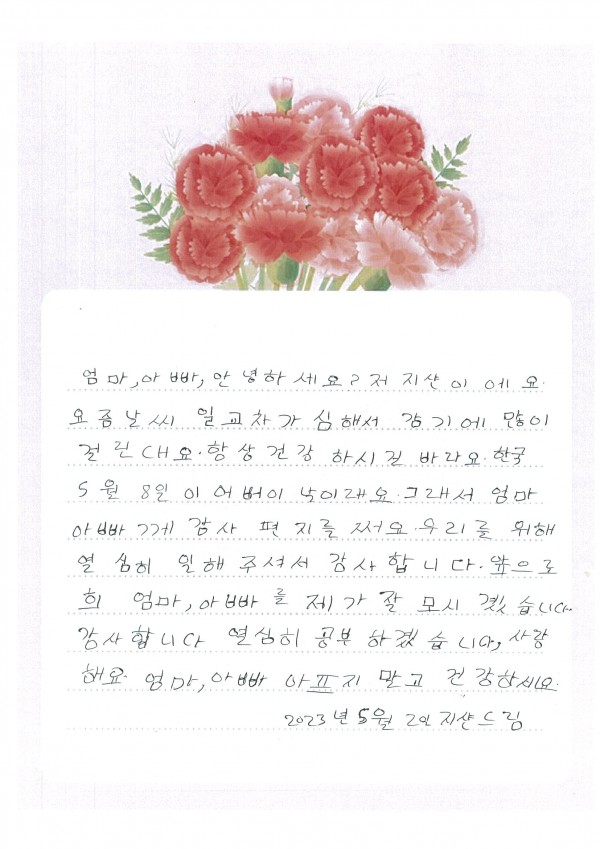 엄마, 아빠, 안녕하세요? 저 지샨이에요.
요즘날씨 일교차가 심해서 감기에 많이
걸린대요. 항상 건강 하시길 바라요. 한국
5월 8일이 어버이 낙이래요. 그래서 엄마
아빠 께 감사 편지를 써요. 우리를 위해
열심히 일해 주셔서 감사합니다. 앞으로
희 엄마, 아빠를 제가 잘 모시 겠습니다.
감사합니다 열심히 공부 하겠습니다, 사랑
해요. 엄마, 아빠 아프지 말고 건강하세요.
2023년 5월 2일 지샨드림